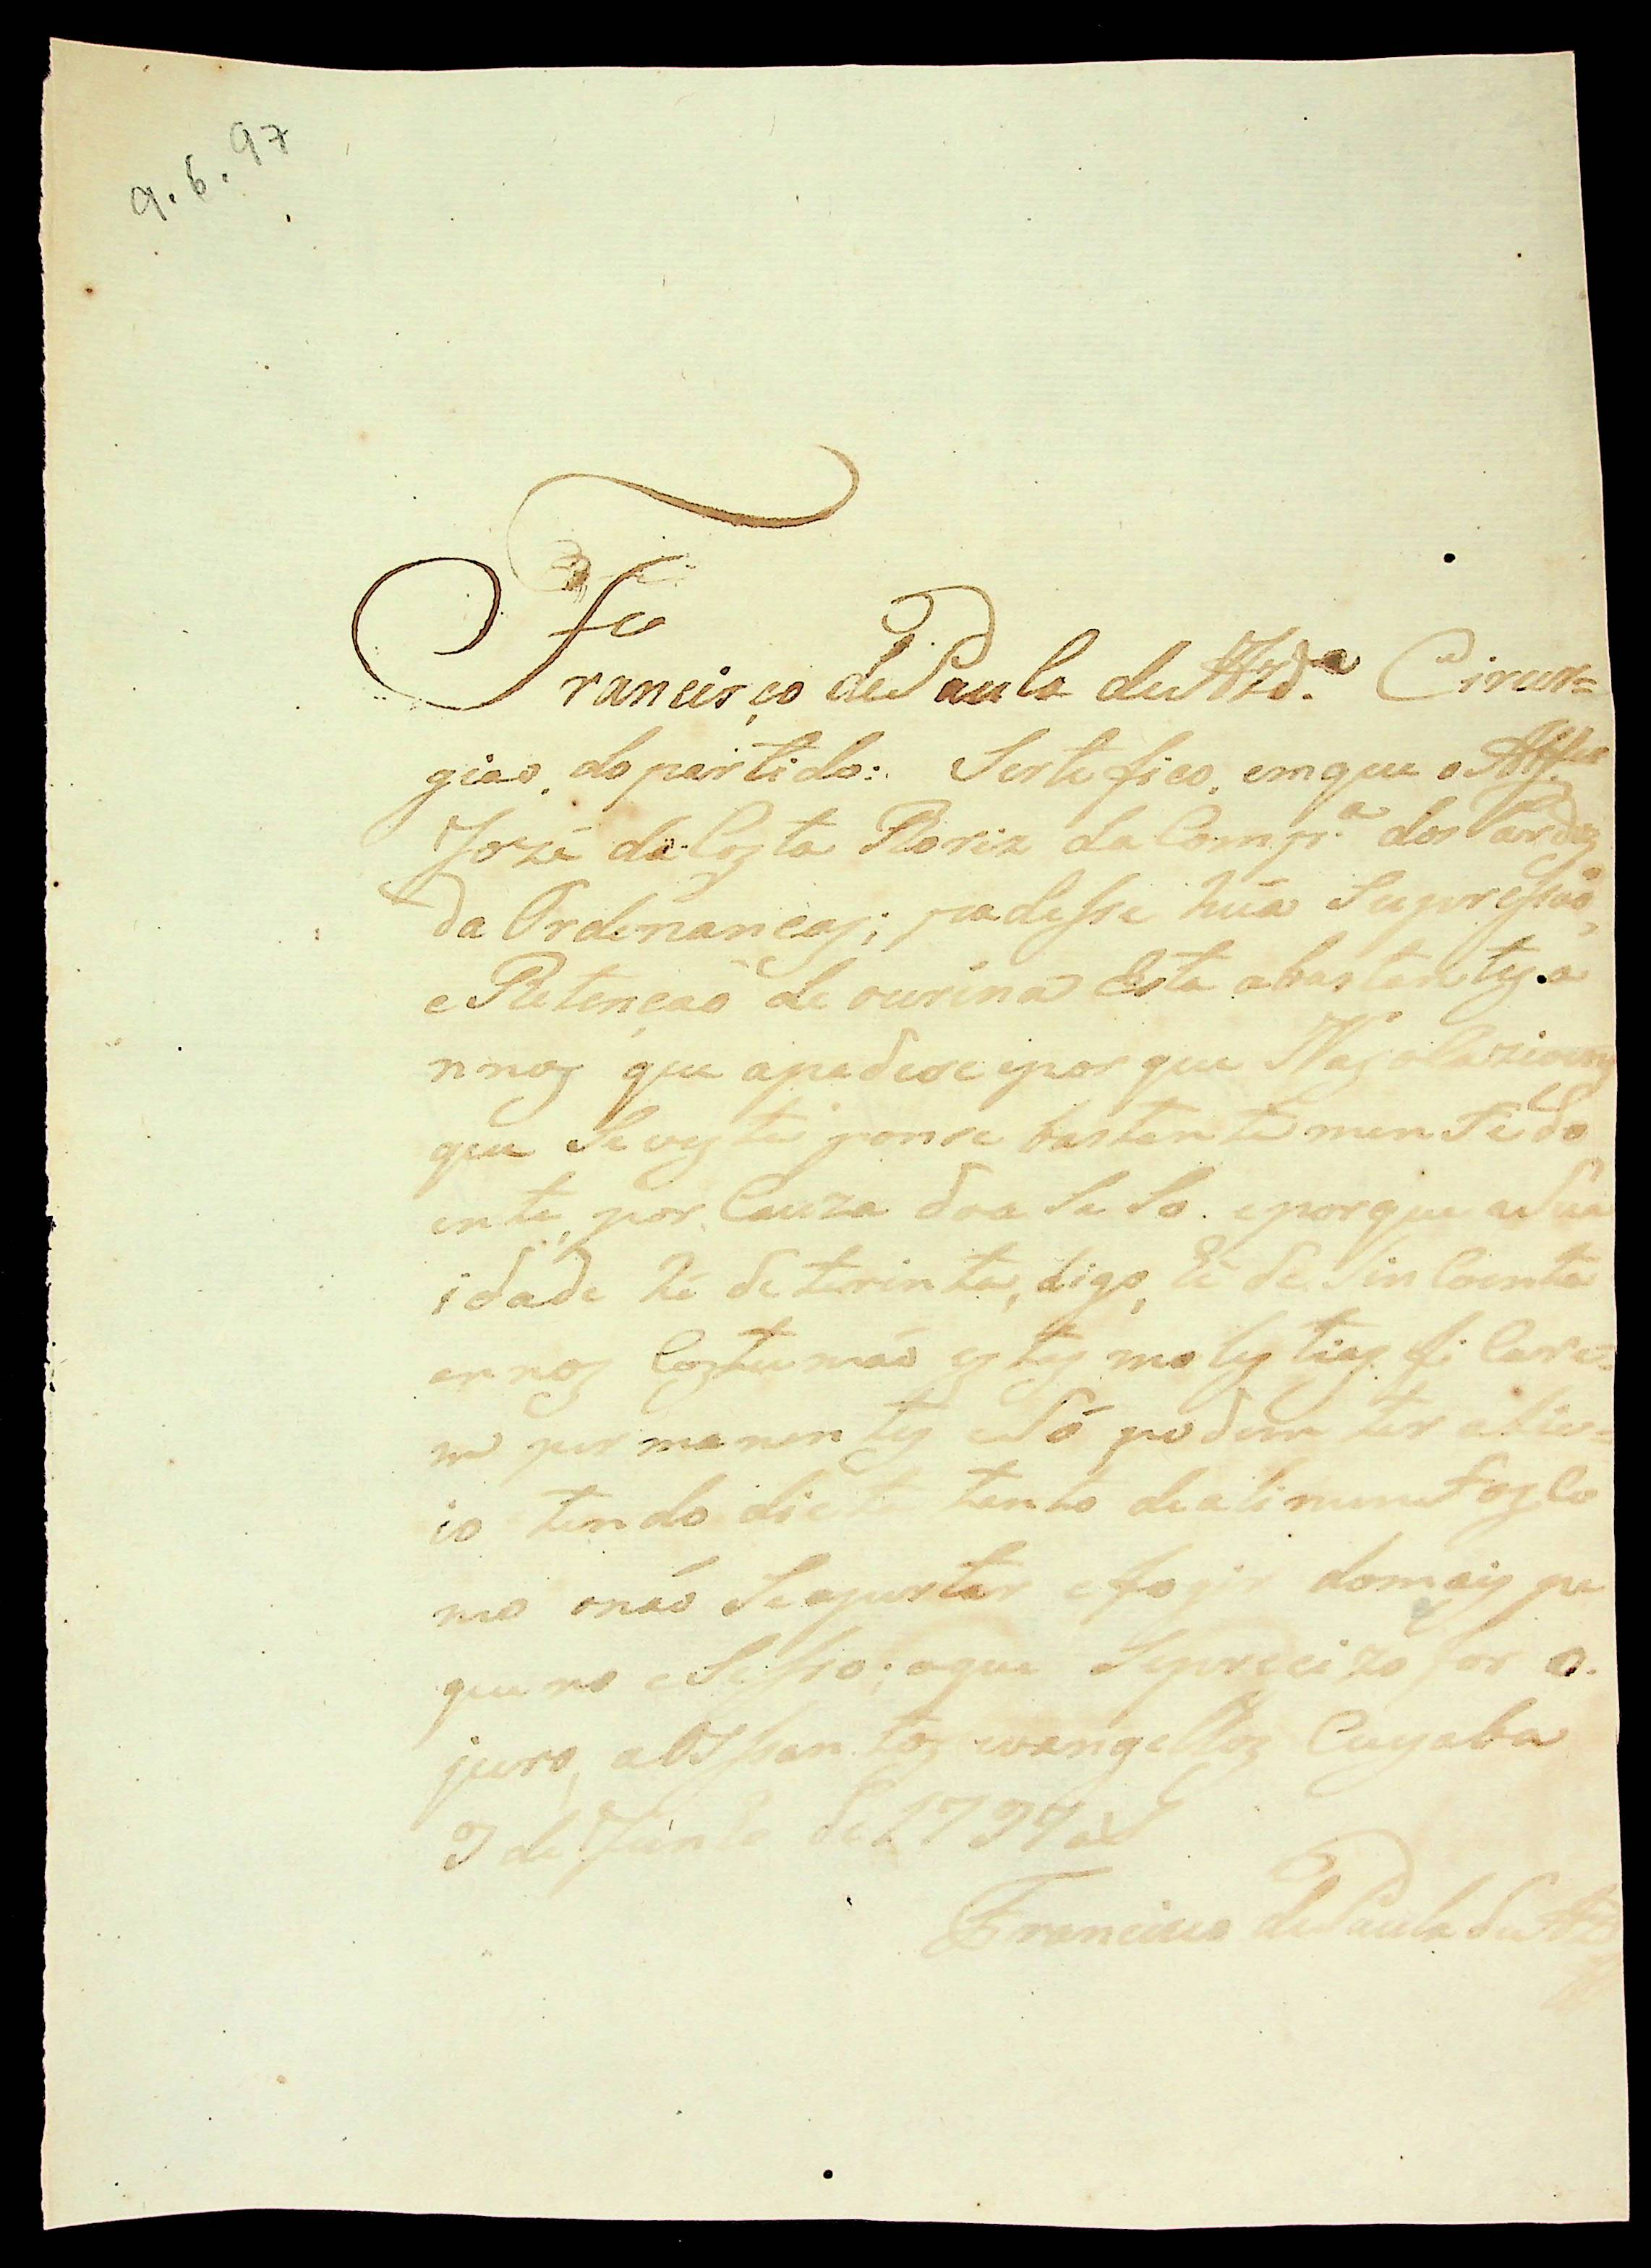 9.6.97
Francisco de Paula de Azd.ª Cirur=
giao, do partido: Sertefico, em que o Alfes
Jozé da Costa Roriz da Comp.ª dos Pardos
da Ordenancas; padesse hũa Supressaõ,
e Retençaõ de ourina Esta abastantes a
nnos que apadese eporque Nas olazioens
que Se veste ponse bastante mente do
ente, por Cauza doa SeSo. eporque a Sua
idade hé de trinta, digo, hé de Sin Coenta
annos Costumaõ estes molestias fi Care=
m permanentes e Só podem ter alive=
io tendo dieta tanto de alimentos Co
mo onaõ Seajustar efogir domais pe
queno eSeSso; oque Seprecizo for o
juro, aos Santos evangelhos Cuyaba
9 de Junho de 1797 a
Francisco de Paula de Az